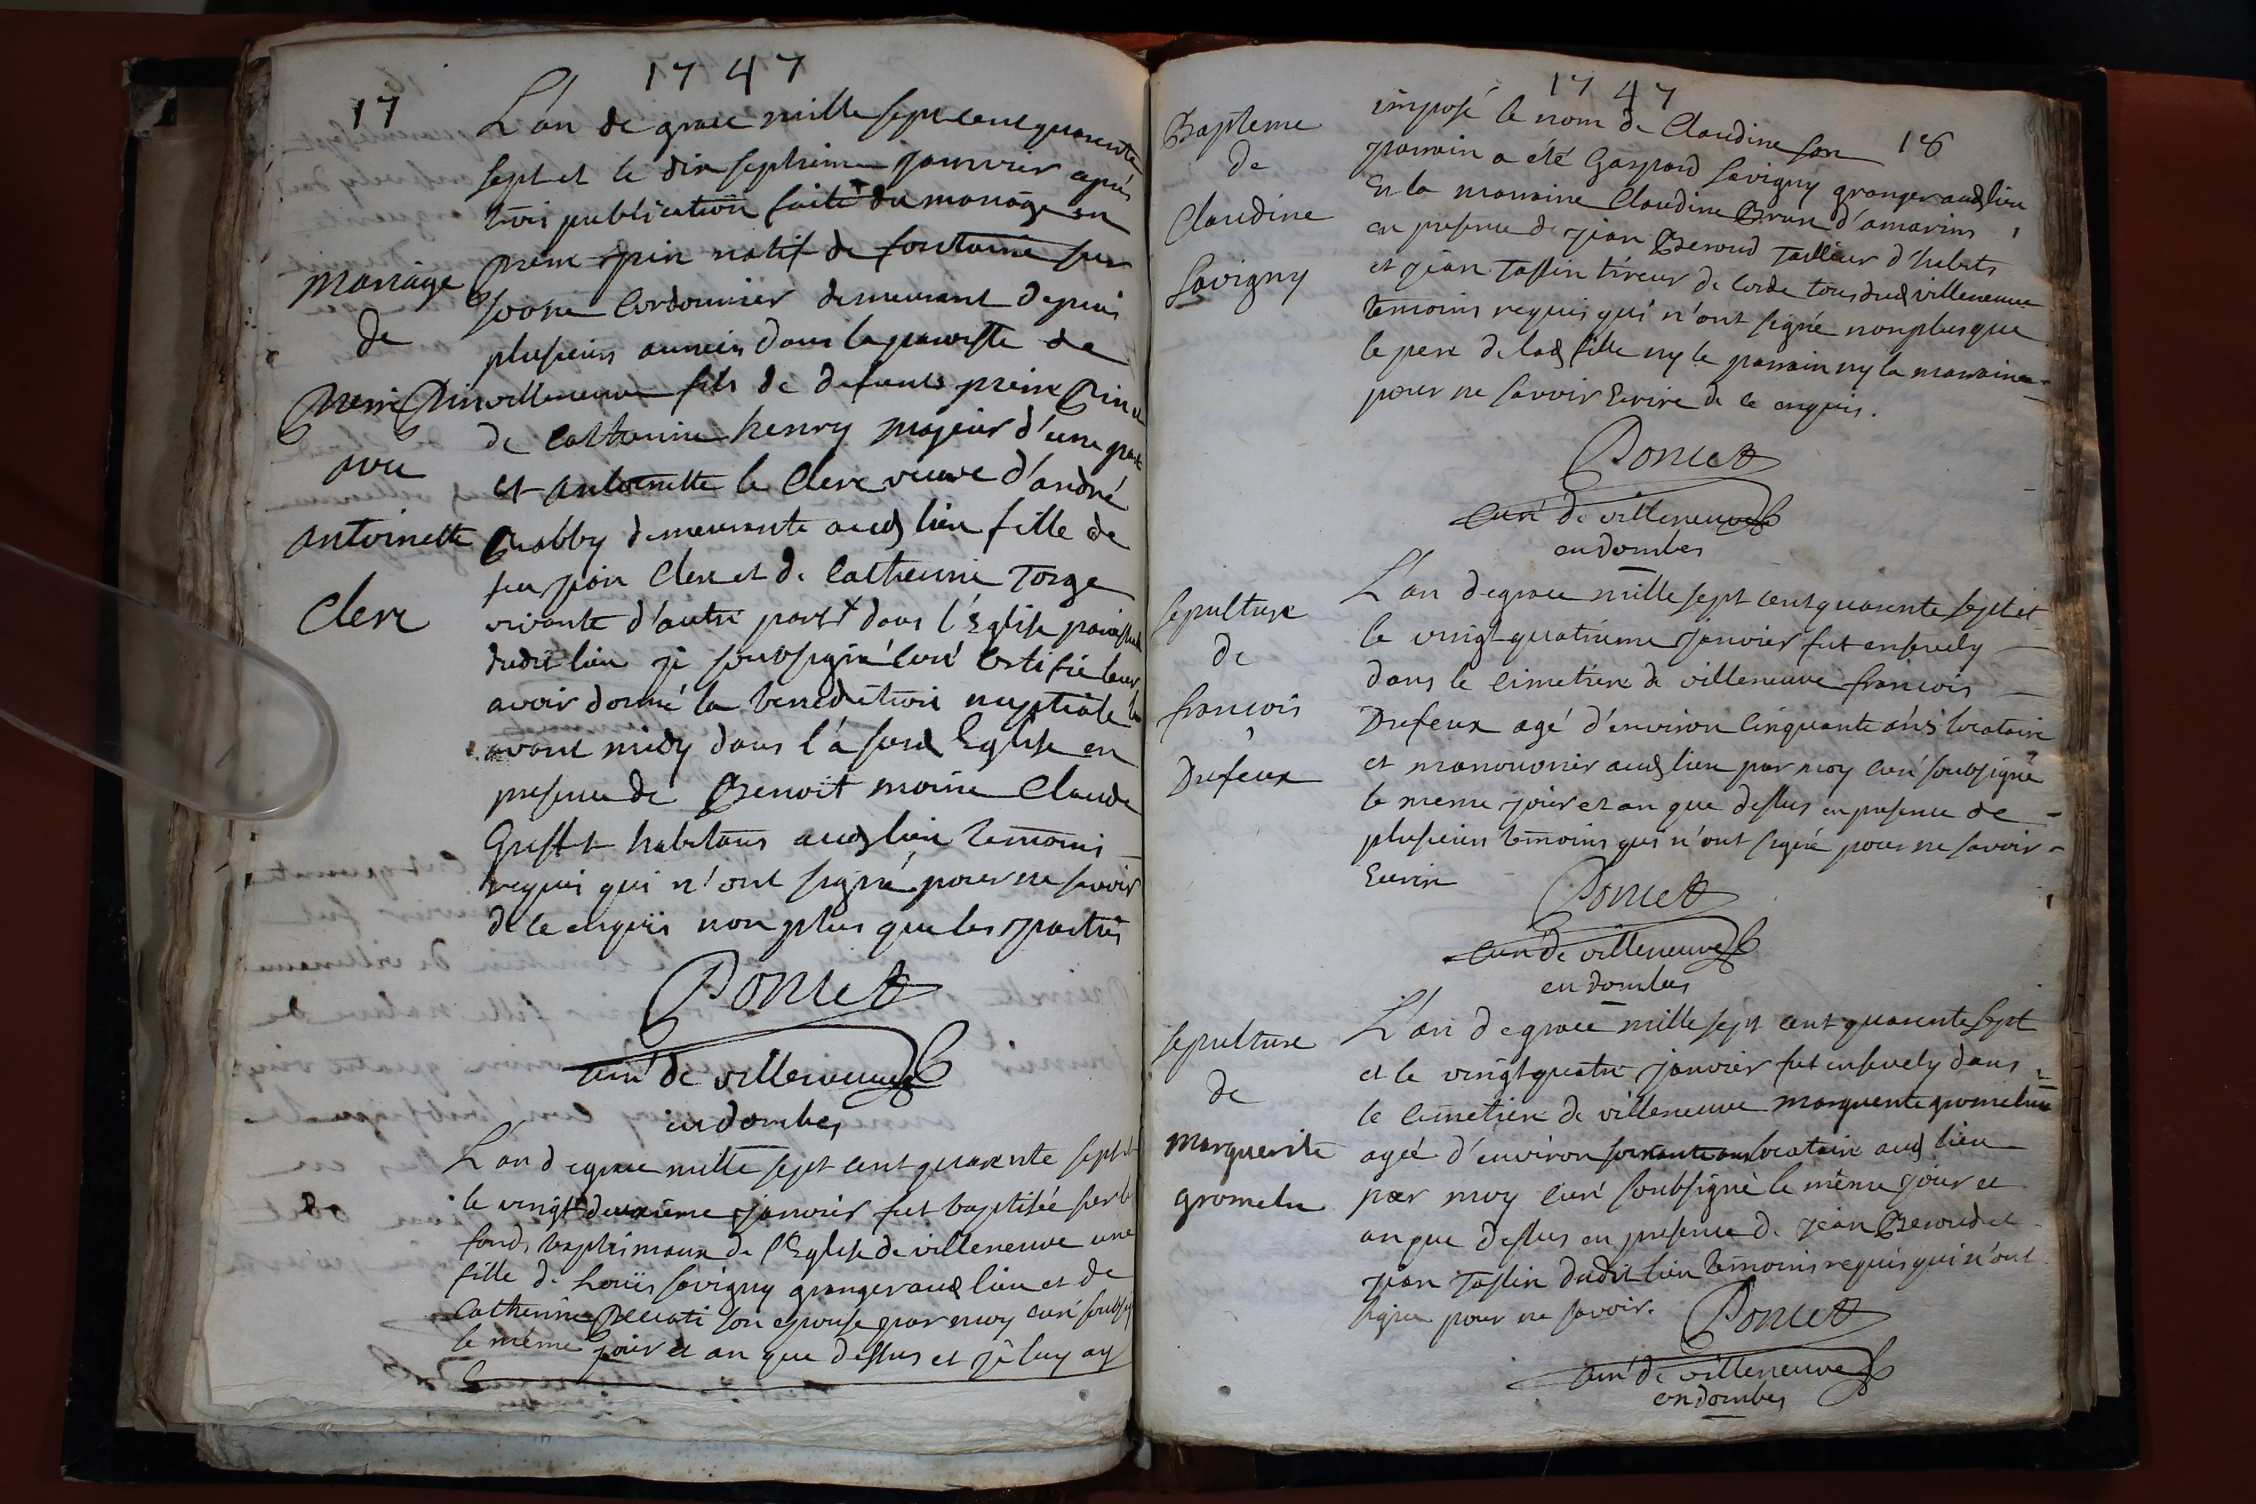 1747
17
L'an de grace mille sept cent quarente
sept et le dix septieme janvier après
trois publication faite du mariage en
natif de fontaine sur
Soone Cordonnier demeurant depuis
plusieurs années dans la paroisse de
villeneuve fils de defunts
de Catherine henry majeur d'une part
et antoinette le Clerc veuve d'andré
demeurante aud lieu fille de
feu Clerc et de Catherine
vivante d'autre part dans l'Eglise
dudit lieu je soubsigné Curé certifie leur
avoir donné la benediction nuptiale
avant midy dans la susd Eglise en
presence de Benoit moine Claude
habitans aud lieu temoins
requis qui n'ont signé pour ne savoir
de ce enquis non plus que les parties
Mariage
de
avec
antoinette
Clerc
Poncet
curé de villeneuve
en dombes
L'an de grace mille sept cent quarente sept et
le vingt deuxième janvier fut baptisée sur les
fonds baptismaux de l'Eglise de villeneuve une
fille de Louïs Savigny granger aud lieu et de
Catherine son epouse par moy curé soubsig
le même jour et an que dessus et je luy ay
1747
18
Bapteme
de
Claudine
Savigny
imposé le nom de Claudine son
parrain a été Gaspard Savigny granger aud lieu
Et la marraine Claudine Brun d'amarins
en presence de jean Beroud Tailleur d'habits
et jean Tassin tireur de corde tous dud villeneuve
temoins requis qui n'ont signé non plus que
le pere de lad fille ny le parrain ny la marraine
pour ne savoir Ecrire de ce enquis.
Poncet
curé de villeneuve
en dombes
sepulture
de
francois
Dufeux
L'an de grace mille sept cent quarente sept et
le vingt quatrieme janvier fut ensevely
dans le cimetiere de villeneuve francois
Dufeux agé d'environ cinquante ans locataire
et manouvrier aud lieu par moy curé soubsigné
le meme jour et an que dessus en presence de
plusieurs temoins qui n'ont signé pour ne savoir
Ecrire
Poncet
curé de villeneuve
en dombes
sepulture
de
Marguerite
gromelu
L'an de grace mille sept cent quarente sept
et le vingt quatre janvier fut ensevely dans
le cimetiere de villeneuve marguerite
agée d'environ soixante ans locataire aud lieu
par moy curé soubsigné le même jour et
an que dessus en presence de jean Beroud et
jean Tassin dudit lieu temoins requis qui n'ont
signé pour ne savoir.
Poncet
curé de villeneuve
en dombes